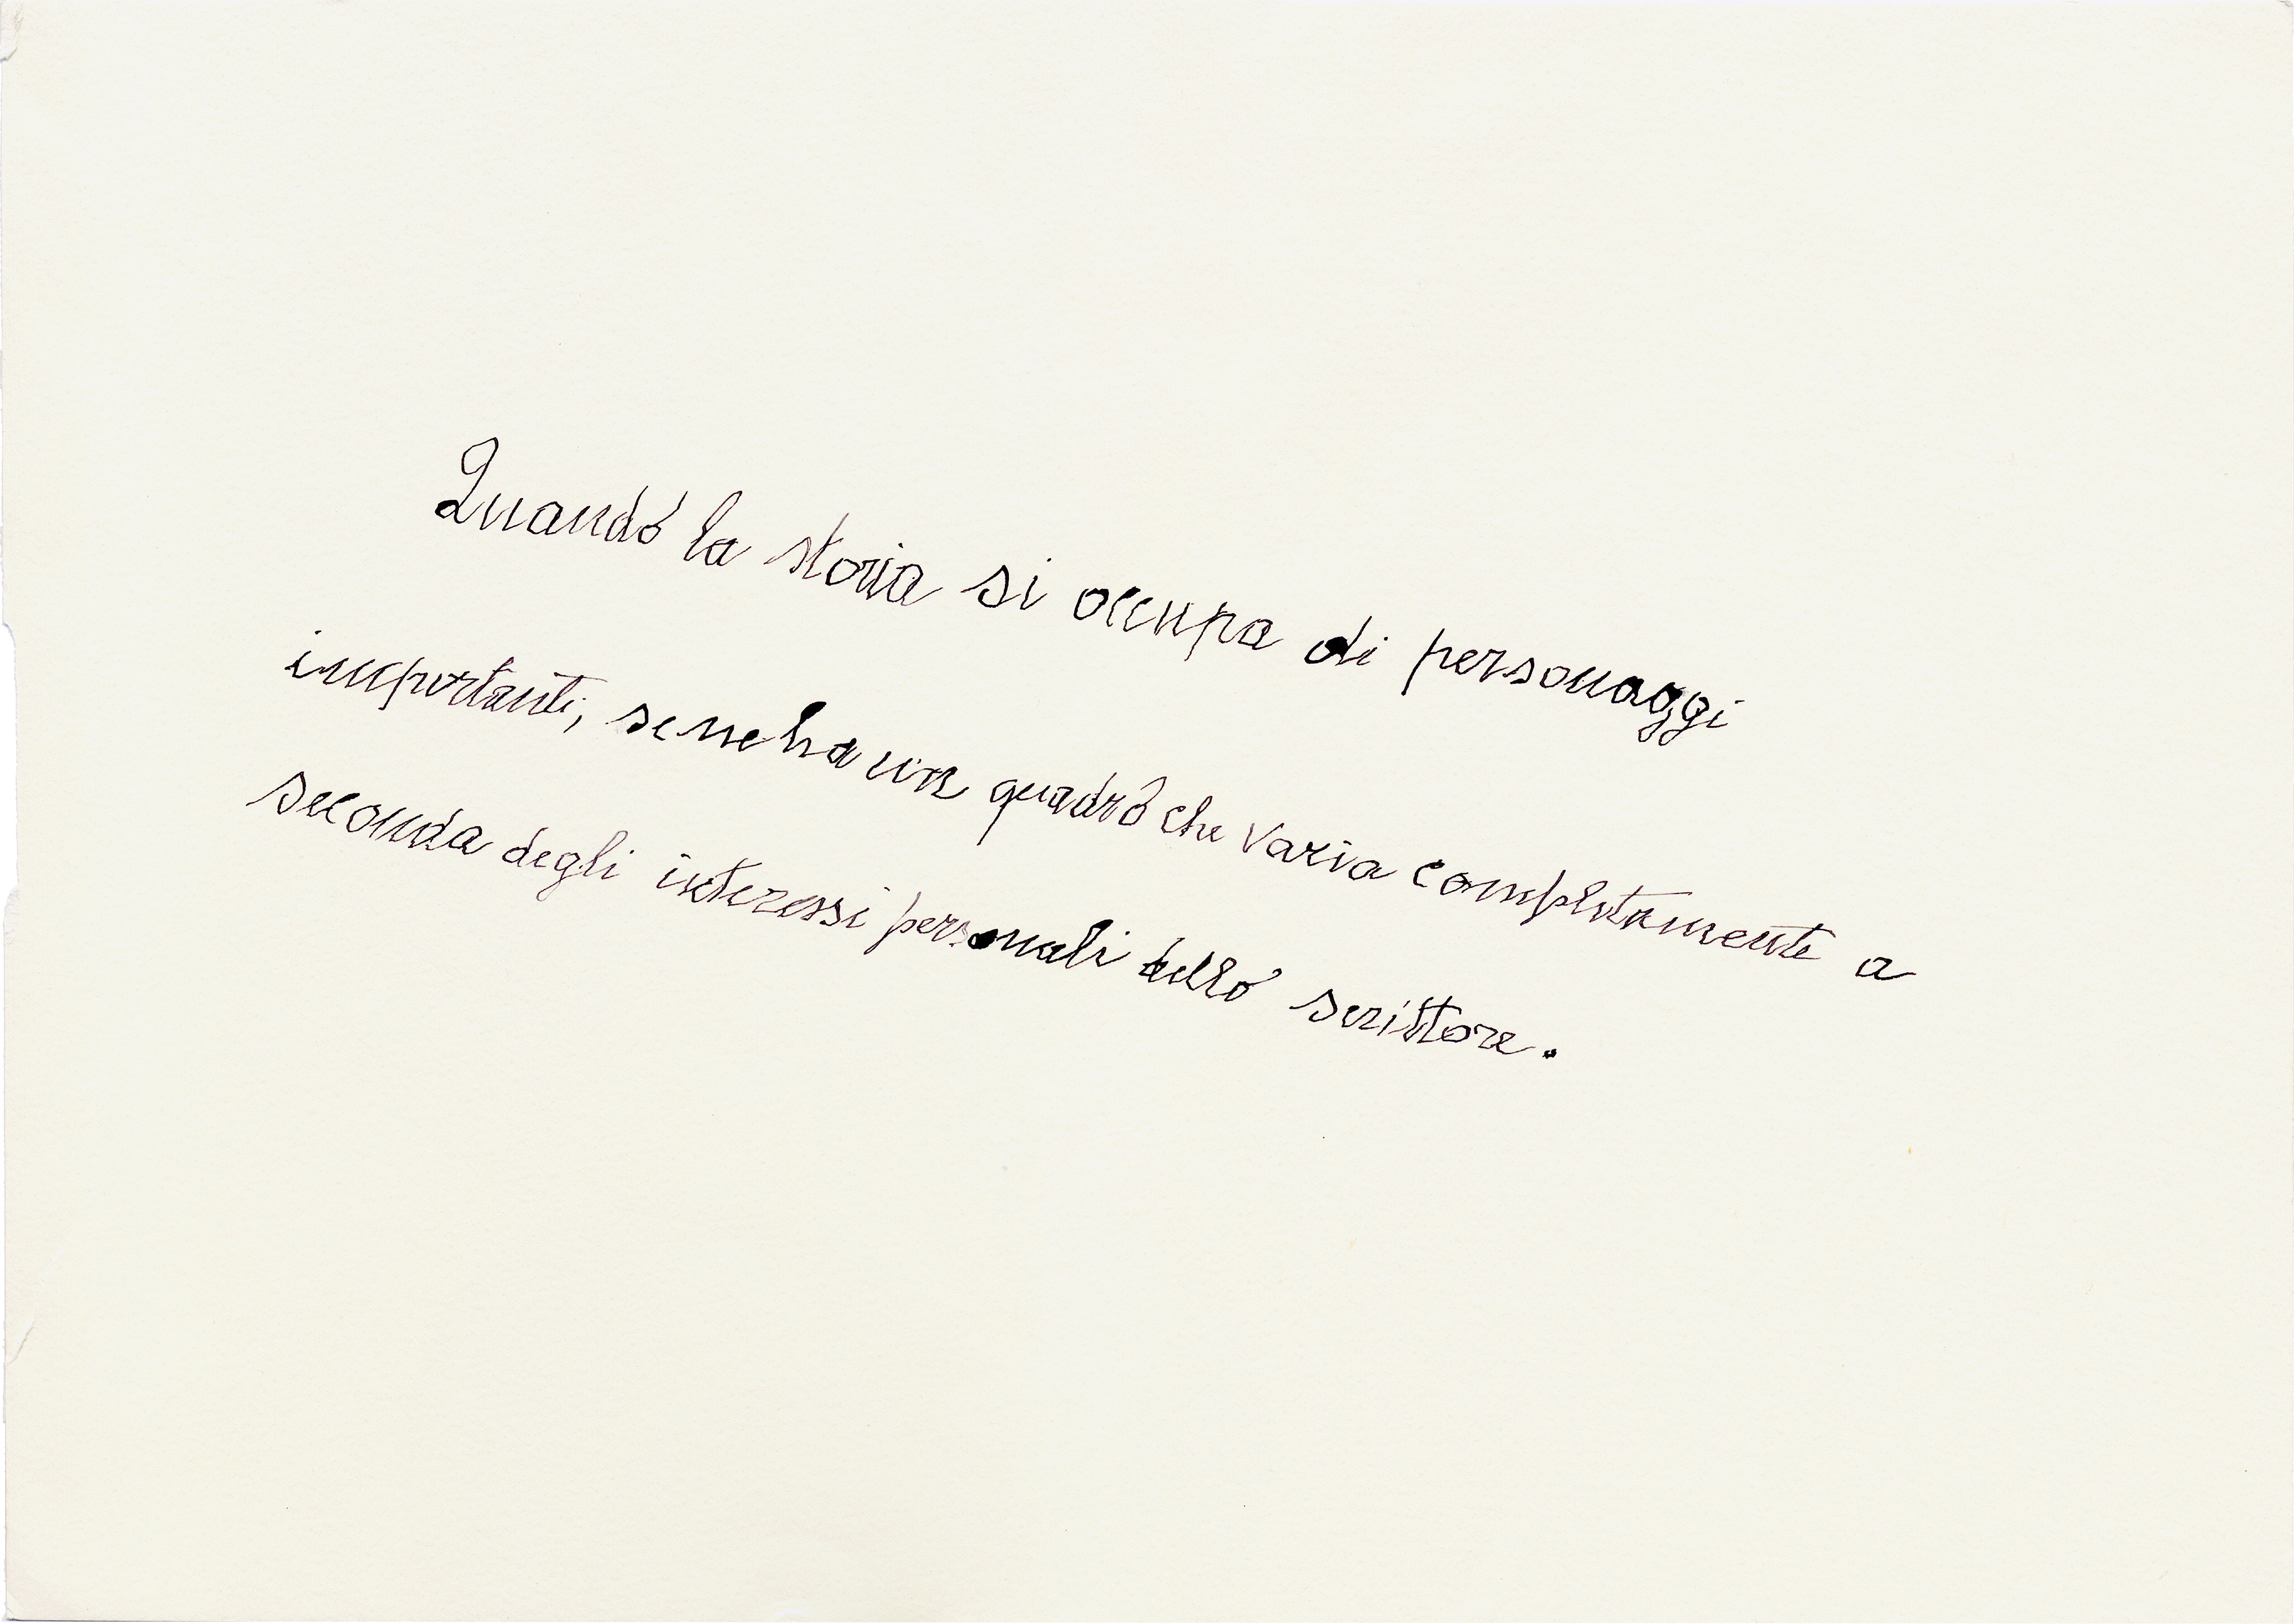 Quando la storia si occupa di personaggi
importanti, se ne ha un quadro che varia completamente a
seconda degli interessi personali dello scrittore.